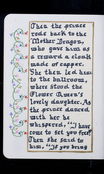 Then the prince
rode back to the
Mother Dragon,
who gave him as
a reward a cloak
made of copper.
She then led him
to the ballroom,
where stood the
Flower Queen's
lovely daughter. As
the prince danced
with her he
whispered, "I have
come to set you free!"
Then she said to
him, "If you bring